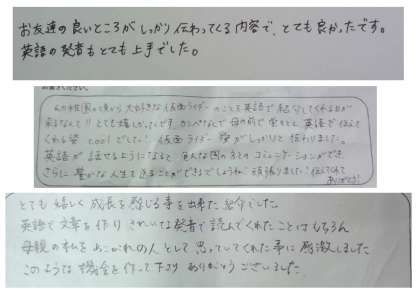 お友達の良いところがしっかり伝わってくる内容で、とても良かったです。
英語の発音もとても上手でした。
の頃から大好きな仮面ライダーのことを英語で紹介してくれる日が
来るなんて!! とても嬉しかったです。カンペなしで母の前で堂々と、英語で伝えて
くれる姿 coolでした! 仮面ライダー愛がしっかりと伝わりました。
英語が話せるようになると色んな国の人とのコミュニケーションができ、
さらに豊かな人生を送ることができるでしょうね! 頑張りました! 伝えてくれて
ありがとう!
とても嬉しく成長を感じる事を出来た発表でした。
英語で文章を作り きれいな発音で読んでくれたことはもちろん
母親の私をあこがれの人として思っていてくれた事に感激しました
このような機会を作って下さり ありがとうございました